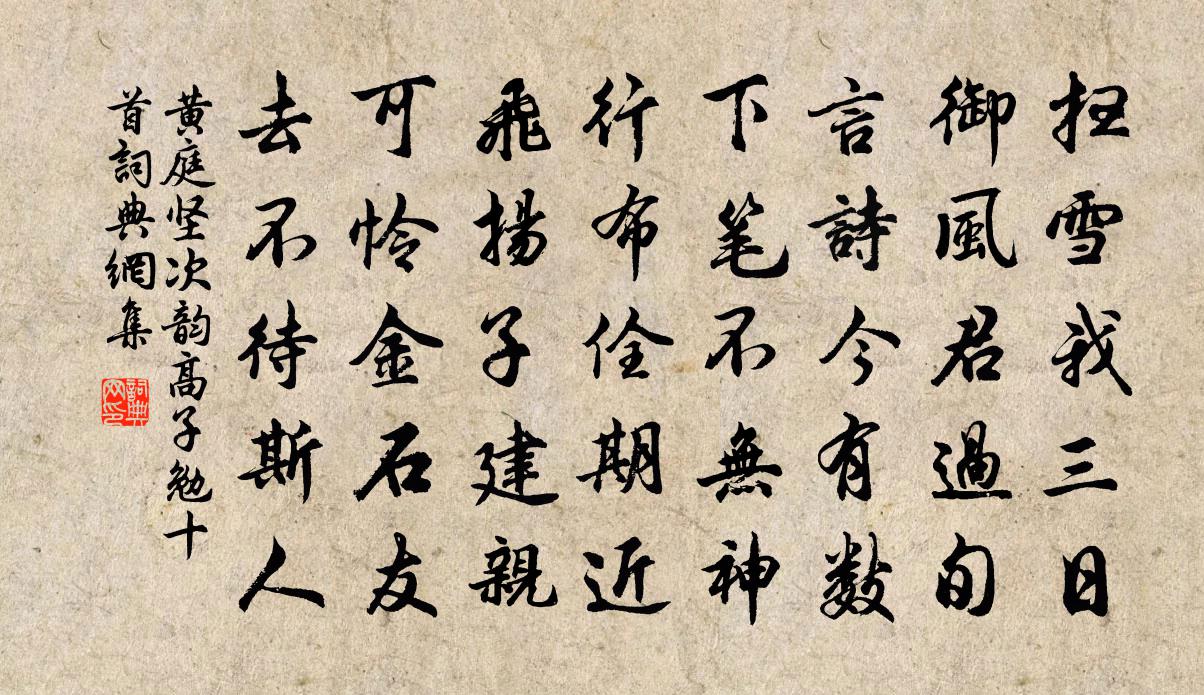 抂雪我三日
御風君過旬
言詩今有数
下笔不無神
行布佺期近
飛揚子建親
可怜金石友
去不待斯人
黄庭坚次韵高子勉十
首詞典網集
詞典
网印